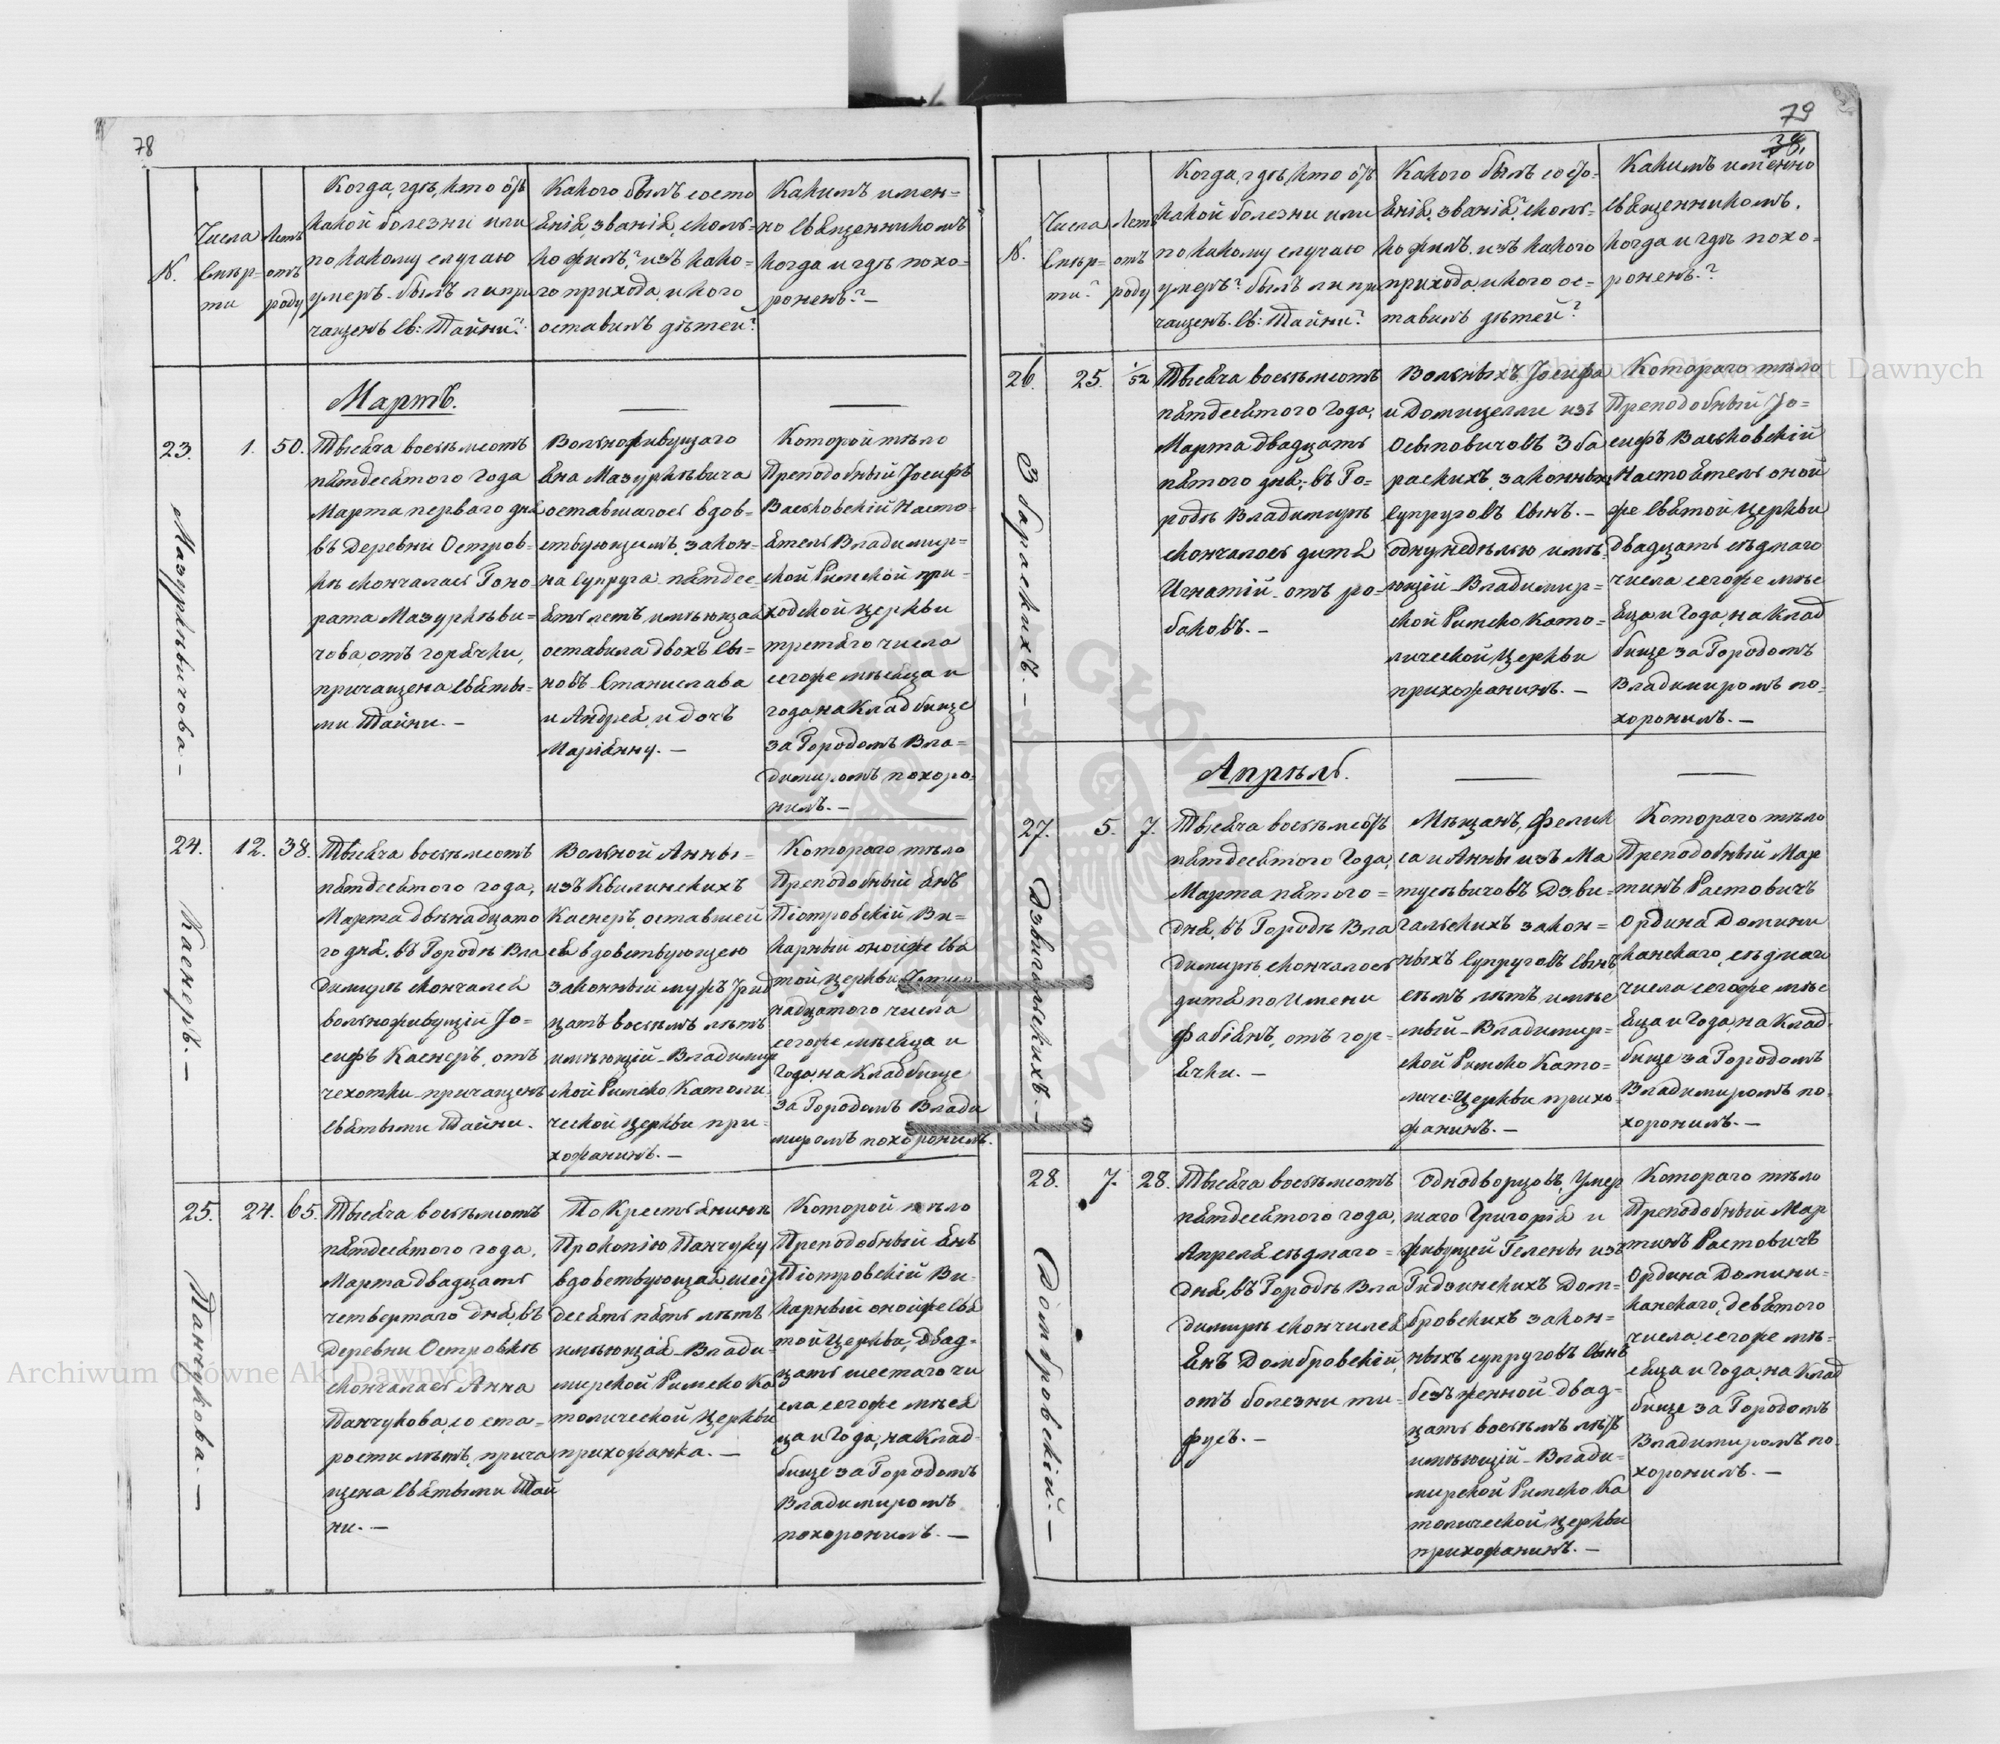 78
N.
Числа
Смер-
ти
Летъ
отъ
роду
Когда, где, кто отъ
какой болезни или
по какому случаю
умеръ. былъ ли при
чащенъ Св: Тайни?
Какого былъ состо
янія, званія, сколь-
ко жилъ? изъ како-
го прихода, и кого
оставилъ дѣтей?
Какимъ имен-
но Священникомъ
когда и где похо-
роненъ? —
Мартъ.
23.
1.
50.
Мазуркѣвичова —
Тысяча восемьсотъ
пятдесятого года
Марта перваго дня
въ деревни Остров-
кѣ скончалась Гоно
рата Мазуркѣви-
чова, отъ горячки,
причащена Святы-
ми Тайни. —
Вольноживущаго
Яна Мазуркѣвича
оставшагось вдов-
ствующимъ, закон-
на Супруга пятдес-
ятъ летъ имѣющая
оставила двохъ Сы-
новъ Станислава
и Андрея, и дочь
Маріянну. —
Которой тѣло
Преподобный Іосифъ
Васьковскій Насто-
ятель Владимир-
ской Римской при-
ходской Церкви
третяго числа
сегоже мѣсяца и
года, на Кладбище
за Городомъ Вла-
димиромъ похоро-
нилъ. —
24.
12.
38.
Каснеръ. —
Тысяча восемьсотъ
пятдесятого года,
Марта двенадцато
го дня, въ Городѣ Вла
димирѣ скончался
вольноживущій Іо-
сифъ Каснеръ, отъ
чехотки причащенъ
Святыми Тайни.
Вольной Анны
изъ Квилинскихъ
Каснеръ, оставшей
ся вдовствующею
законный мужъ, трид
цать восемъ лѣтъ
имѣющій Владимир
ской Римско Католи
ческой Церкви при-
хожанинъ. —
Котораго тѣло
Преподобный Янъ
Піотровскій Ви-
карный онойже Свя
той Церкви Четыр
надцатого числа
сегоже мѣсяца и
Года, на Кладбище
за Городомъ Влади
миромъ похоронилъ.
25.
24.
65.
Панчукова. —
Тысяча восемьсотъ
пятдесятого года,
Марта двадцать
четвертаго дня, въ
деревни Островкѣ
скончалась Анна
Панчукова, со ста-
рости лѣтъ, прича
щена Святыми Тай
ни. —
По Крестьянинѣ
Прокопію Панчуку
вдовствующая, шесть
десятъ пять лѣтъ
имѣющая Влади-
мирской Римско Ка
толической Церкви
прихожанка. —
Которой тѣло
Преподобный Янъ
Піотровскій Ви-
карный онойже Свя
той Церкви, двад-
цать шестаго чи
сла сегоже мѣся
ца и Года, на Клад-
бище за Городомъ
Владимиромъ
похоронилъ. —
79
N.
Числа
Смер-
ти?
Летъ
отъ
роду
Когда, где, кто отъ
какой болезни или
по какому случаю
умеръ? былъ ли при
чащенъ Св: Тайни?
Какого былъ состо-
янія, званія? сколь-
ко жилъ, изъ какого
прихода, и кого ос-
тавилъ дѣтей?
Какимъ именно
Священникомъ,
когда и где похо-
роненъ?
26.
25.
1/52
Збараскихъ. —
Тысяча восемьсотъ
пятдесятого Года,
Марта двадцать
пятого дня, въ Го-
родѣ Владимирѣ
скончалось дитя
Игнатій отъ ро-
баковъ. —
Вольныхъ, Іосифа
и Домицелли изъ
Осьповичовъ Зба
раскихъ, законныхъ
Супруговъ Сынъ. —
одну недѣлю имѣ-
ющій Владимир-
ской Римско Като-
лической Церкви
прихожанинъ. —
Котораго тѣло
Преподобный Іо-
сифъ Васьковскій
Настоятель оной
же Святой Церкви
двадцать седмаго
числа сегоже мѣс
яца и Года, на Клад
бище за Городомъ
Владимиромъ по-
хоронилъ. —
Апрель.
27.
5.
7.
Дзвигальскихъ. —
Тысяча восемьсотъ
пятдесятого Года,
Марта пятого
дня, въ Городѣ Вла
димирѣ, скончалось
дитя по Имени
Фабіянъ, отъ гор-
ячки. —
Мѣщанъ, Фелик
са и Анны изъ Ма
тусѣвичовъ Дзви-
гальскихъ закон-
ныхъ Супруговъ Сынъ
семъ лѣтъ имѣе
мый Владимир-
ской Римско Като-
личе: Церкви прихо-
жанинъ. —
Котораго тѣло
Преподобный Мар
тинъ Растовичъ
Ордина Домини
канскаго, седмаго
числа сегоже мѣс
яца и Года, на Клад-
бище за Городомъ
Владимиромъ по-
хоронилъ. —
28.
7.
28.
Домбровскій. —
Тысяча восемьсотъ
пятдесятого года,
Апреля седмаго
дня, въ Городѣ Вла
димирѣ скончился
Янъ Домбровскій,
отъ болезни ти-
фусъ. —
Однодворцовъ, Умер
шаго Григорія и
живущей Гелены изъ
Гидзинскихъ Дом-
бровскихъ закон-
ныхъ супруговъ Сынъ
безъженной двад-
цать восемъ лѣтъ
имѣющій Влади-
мирской Римско Ка
толической церкви
прихожанинъ. —
Котораго тѣло
Преподобный Мар
тинъ Растовичъ
Ордина Домини-
канскаго, девятого
числа, сегоже мѣ-
сяца и Года, на Клад
бище за Городомъ
Владимиромъ по-
хоронилъ. —
Archiwum Główne Akt Dawnych
Archiwum Główne Akt Dawnych